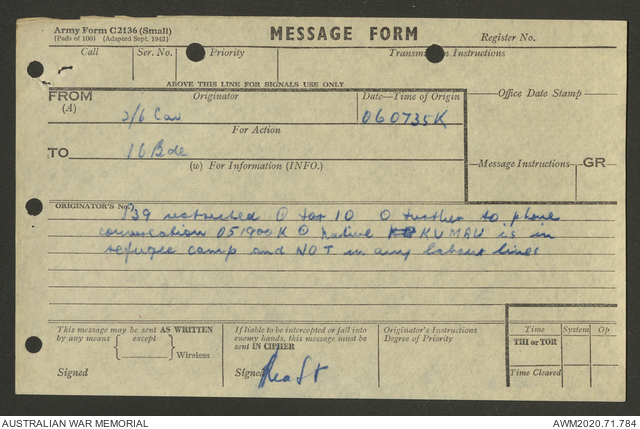 Army Form C2136 (Small)
(Pads of 100) (Adapted Sept. 1943)
MESSAGE FORM
Register No.
Call Ser. No. Priority Transmission Instructions
ABOVE THIS LINE FOR SIGNALS USE ONLY
FROM Originator Date—Time of Origin Office Date Stamp
(A)
2/6 Cav 060735K
For Action
TO 16 Bde Message Instructions GR
(w) For Information (INFO.)
ORIGINATOR'S No.
P39 restricted O for 10 O further to phone
conversation 051900K O native KUMAU is in
refugee camp and NOT in any labour lines
This message may be sent AS WRITTEN
by any means except
Wireless
Signed
If liable to be intercepted or fall into
enemy hands, this message must be
sent IN CIPHER
Signed
Originator's Instructions
Degree of Priority
Time System Op
THI or TOR
Time Cleared
AUSTRALIAN WAR MEMORIAL AWM2020.71.784